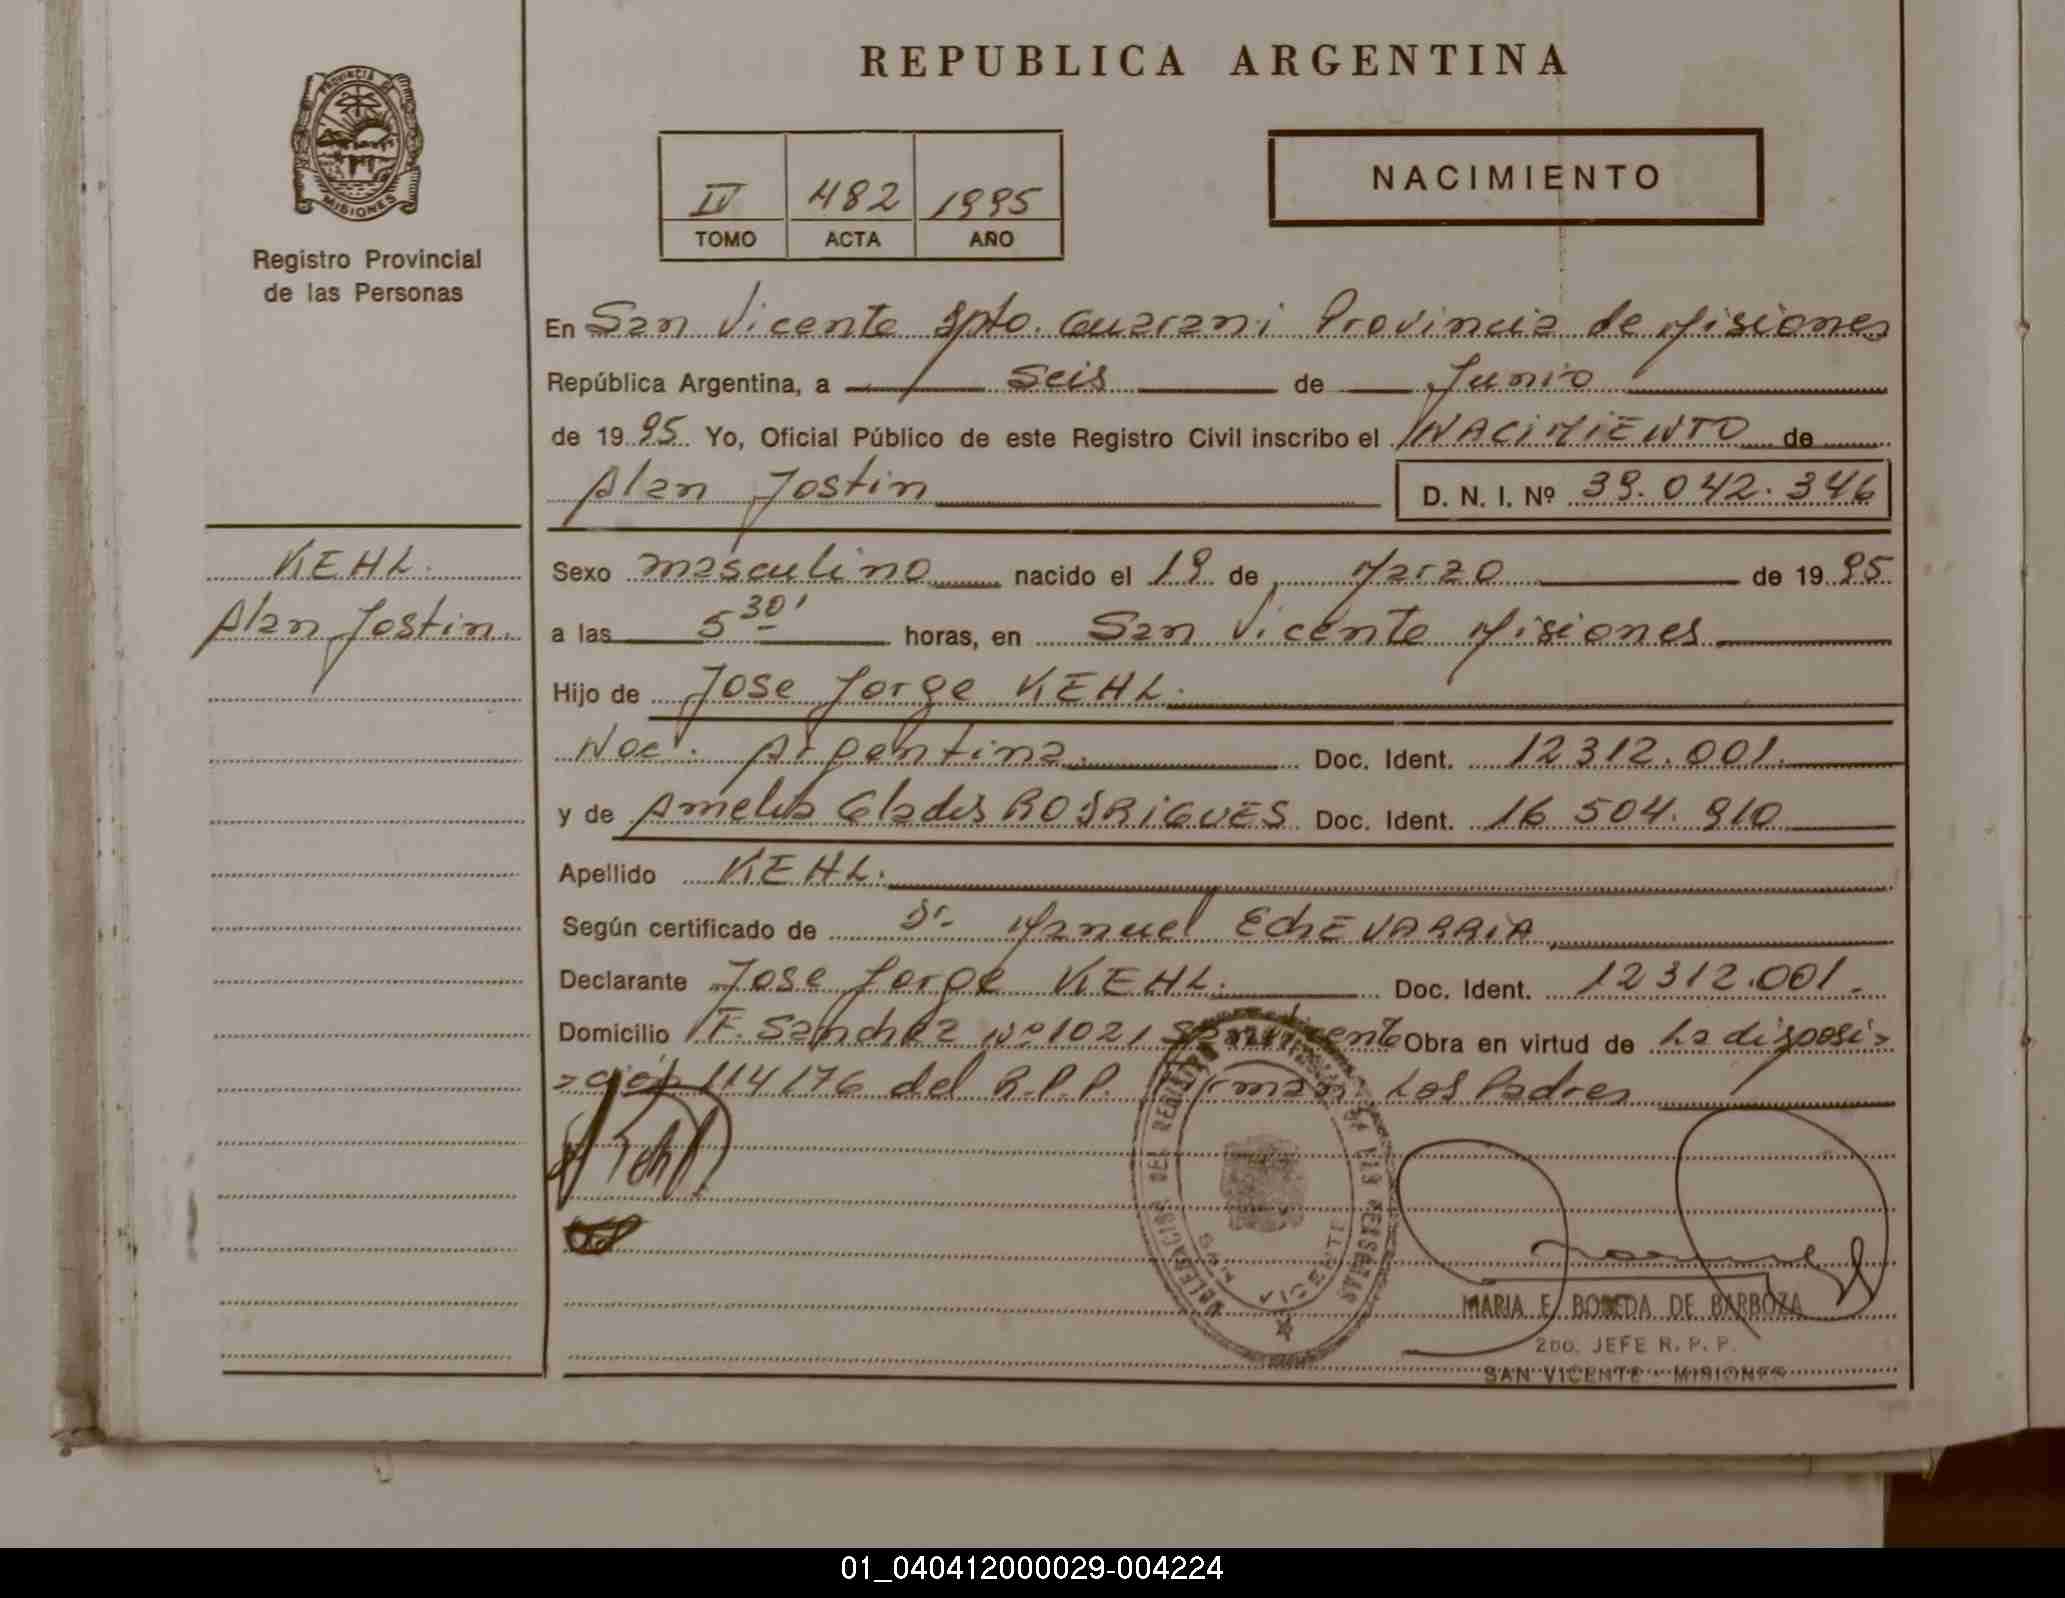 REPUBLICA ARGENTINA
PROVINCIA DE
MISIONES
Registro Provincial
de las Personas
NACIMIENTO
IV 482 1995
TOMO ACTA AÑO
En San Vicente Dpto. Guarani Provincia de Misiones
República Argentina, a Seis de Junio
de 1995 Yo, Oficial Público de este Registro Civil inscribo el NACIMIENTO de
Alan Jostin D. N. I. Nº 39.042.346
KEHL.
Alan Jostin.
Sexo masculino nacido el 19 de Marzo de 1995
a las 5 30' horas, en San Vicente Misiones
Hijo de Jose Jorge KEHL.
Nac. Argentina. Doc. Ident. 12312.001.
y de Amelia Gladis RODRIGUES Doc. Ident. 16 504.910
Apellido KEHL.
Según certificado de Dr. Manuel EchEVARRIA
Declarante Jose Jorge KEHL. Doc. Ident. 12312.001.
Domicilio F. Sanchez Nº 1021 San Vicente Obra en virtud de La disposi=
=ción 114/76 del R.P.P. Firman Los Padres
DELEGACION DEL REGISTRO DE LAS PERSONAS
SAN VICENTE
MARIA E. BOBEDA DE BARBOZA
2DO. JEFE R. P. P.
SAN VICENTE - MISIONES
01_040412000029-004224